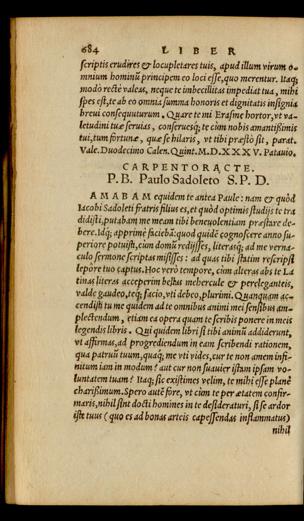 684 LIBER
scriptis erudires & locupletares tuis, apud illum virum o-
mnium hominũ principem eo loci esse, quo merentur. Itaq;
modò rectè valeas, neque te imbecillitas impediat tua, mihi
spes est, te ab eo omnia summa honoris et dignitatis insignia
breui consequuturum. Quare te mi Erasme hortor, vt va-
letudini tuæ seruias, conseruesq; te cùm nobis amantissimis
tui, tum fortunæ, quæ se hilaris, vt tibi præstò sit, parat.
Vale. Duodecimo Calen. Quint. M.D.XXXV. Patauio.
CARPENTORACTE.
P. B. Paulo Sadoleto S. P. D.
AMABAM equidem te antea Paule: nam & quòd
Iacobi Sadoleti fratris filius es, et quòd optimis studijs te tra
didisti, putabam me meam tibi beneuolentiam præstare de-
bere. Idq; apprimè faciebã: quod quidẽ cognoscere anno su-
periore potuisti, cùm domũ redijsses, literasq; ad me verna-
culo sermone scriptas misisses: ad quas tibi statim rescripsi
lepore tuo captus. Hoc verò tempore, cùm alteras abs te La
tinas literas acceperim bellas mehercule & perelegantes,
valde gaudeo, teq; facio, vti debeo, plurimi. Quanquam ac-
cendisti tu me quidem ad te omnibus animi mei sensibus am-
plectendum, etiam ea opera quam te scribis ponere in meis
legendis libris. Qui quidem libri si tibi animũ addiderunt,
vt affirmas, ad progrediendum in eam scribendi rationem,
qua patruũ tuum, quaq; me vti vides, cur te non amem infi-
nitum iam in modum? aut cur non suauier istam ipsam vo-
luntatem tuam? Itaq; sic existimes velim, te mihi esse planè
charissimum. Spero autẽ fore, vt cùm te per ætatem confir-
maris, nihil sint docti homines in te desideraturi, si se ardor
iste tuus (quo es ad bonas arteis capessendas inflammatus)
nihil